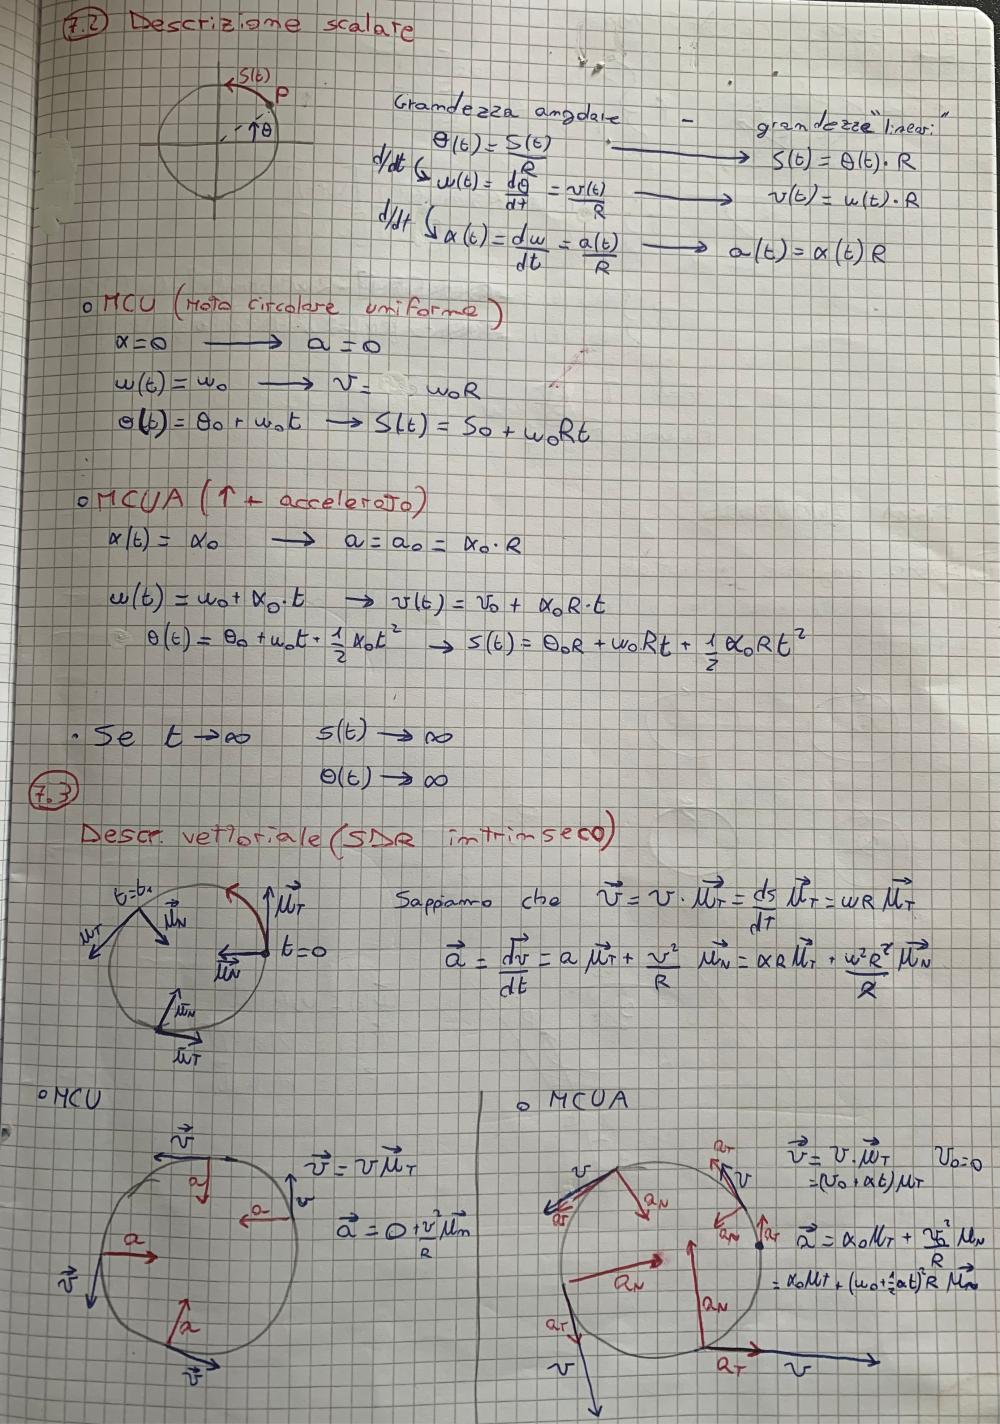 7.2 Descrizione scalare
S(t)
P
θ
Grandezza angolare - grandezze "lineari"
θ(t) = S(t)/R → S(t) = θ(t)· R
d/dt ω(t) = dθ/dt = v(t)/R → v(t) = ω(t)· R
d/dt α(t) = dω/dt = a(t)/R → a(t) = α(t) R
o MCU (Moto circolare uniforme)
α = 0 → a = 0
ω(t) = ω₀ → v = ω₀R
θ(t) = θ₀ + ω₀t → S(t) = S₀ + ω₀Rt
o MCUA (↑ + accelerato)
α(t) = α₀ → a = a₀ = α₀· R
ω(t) = ω₀ + α₀·t → v(t) = v₀ + α₀R·t
θ(t) = θ₀ + ω₀t + 1/2 α₀t² → S(t) = θ₀R + ω₀Rt + 1/2 α₀Rt²
· Se t → ∞ S(t) → ∞
θ(t) → ∞
7.3
Descr. vettoriale (SDR intrinseco)
t=t₁
μ⃗N
μ⃗T
μ⃗T
μ⃗N
t=0
μ⃗N
μ⃗T
Sappiamo che v⃗ = v · μ⃗T = ds/dt μ⃗T = ωR μ⃗T
a⃗ = dv⃗/dt = a μ⃗T + v²/R μ⃗N = αR μ⃗T + ω²R²/R μ⃗N
o MCU
v⃗
a
v
a
a
v⃗
a
v⃗
v⃗ = v μ⃗T
a⃗ = 0 + v²/R μ⃗n
o MCUA
v
aT
aN
aT
v
aN
aT
aN
aT
v
aN
aT
v
v⃗ = v · μ⃗T v₀=0
= (v₀ + αt) μT
a⃗ = α₀ μT + v²/R μN
= α₀ μT + (ω₀ + 1/2 αt)² R μ⃗N